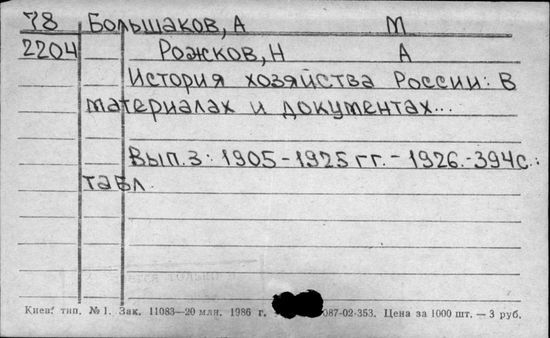 78 Большаков, А М
2204 Рожков, Н А
История хозяйства России: В
материалах и документах...
Вып. 3: 1905-1925 гг. - 1926. - 394 с.:
табл.
Киев. тип. № 1. Зак. 11083—20 млн. 1986 г. 087-02-353. Цена за 1000 шт. — 3 руб.